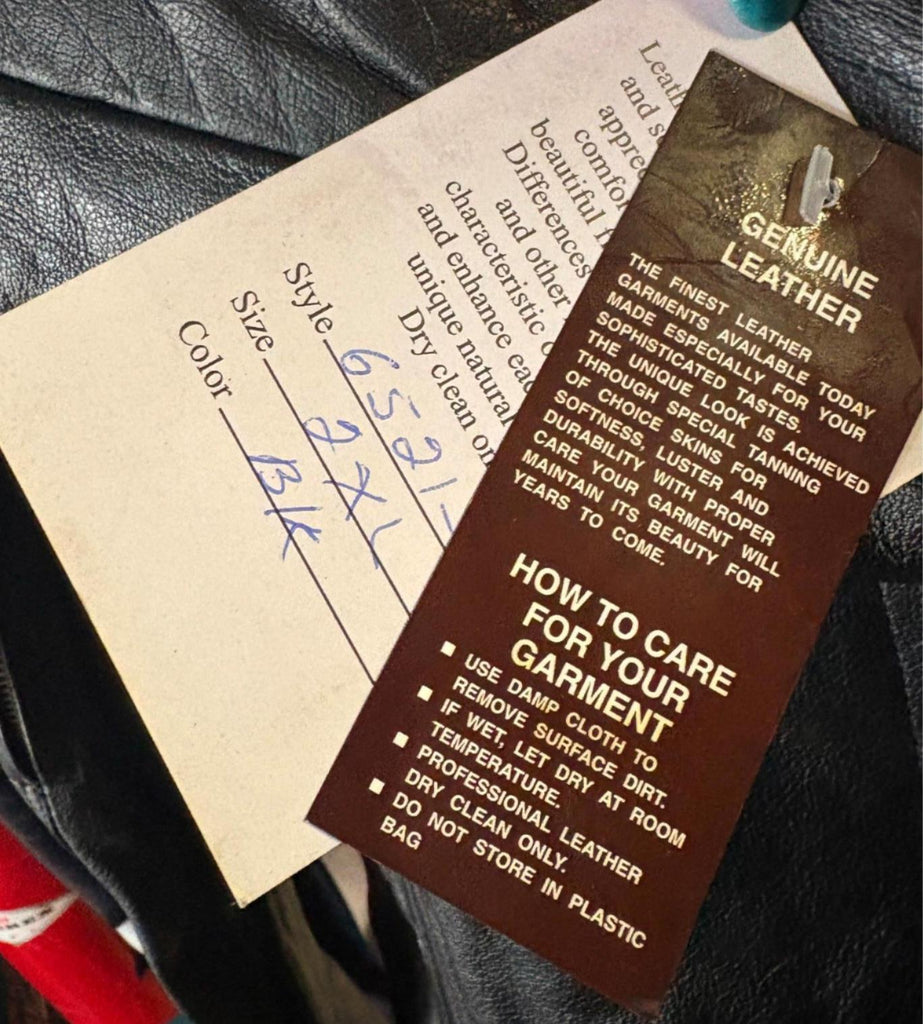 GENUINE
LEATHER
THE FINEST LEATHER
GARMENTS AVAILABLE TODAY
MADE ESPECIALLY FOR YOUR
SOPHISTICATED TASTES.
THE UNIQUE LOOK IS ACHIEVED
THROUGH SPECIAL TANNING
OF CHOICE SKINS FOR
SOFTNESS, LUSTER AND
DURABILITY WITH PROPER
CARE YOUR GARMENT WILL
MAINTAIN ITS BEAUTY FOR
YEARS TO COME.
HOW TO CARE
FOR YOUR
GARMENT
▪ USE DAMP CLOTH TO
REMOVE SURFACE DIRT.
▪ IF WET, LET DRY AT ROOM
TEMPERATURE.
▪ PROFESSIONAL LEATHER
DRY CLEAN ONLY.
▪ DO NOT STORE IN PLASTIC
BAG
and
beautiful
Differences
and other
characteristic
and enhance
unique natural
Dry clean
Style 6521-
Size 2XL
Color Blk